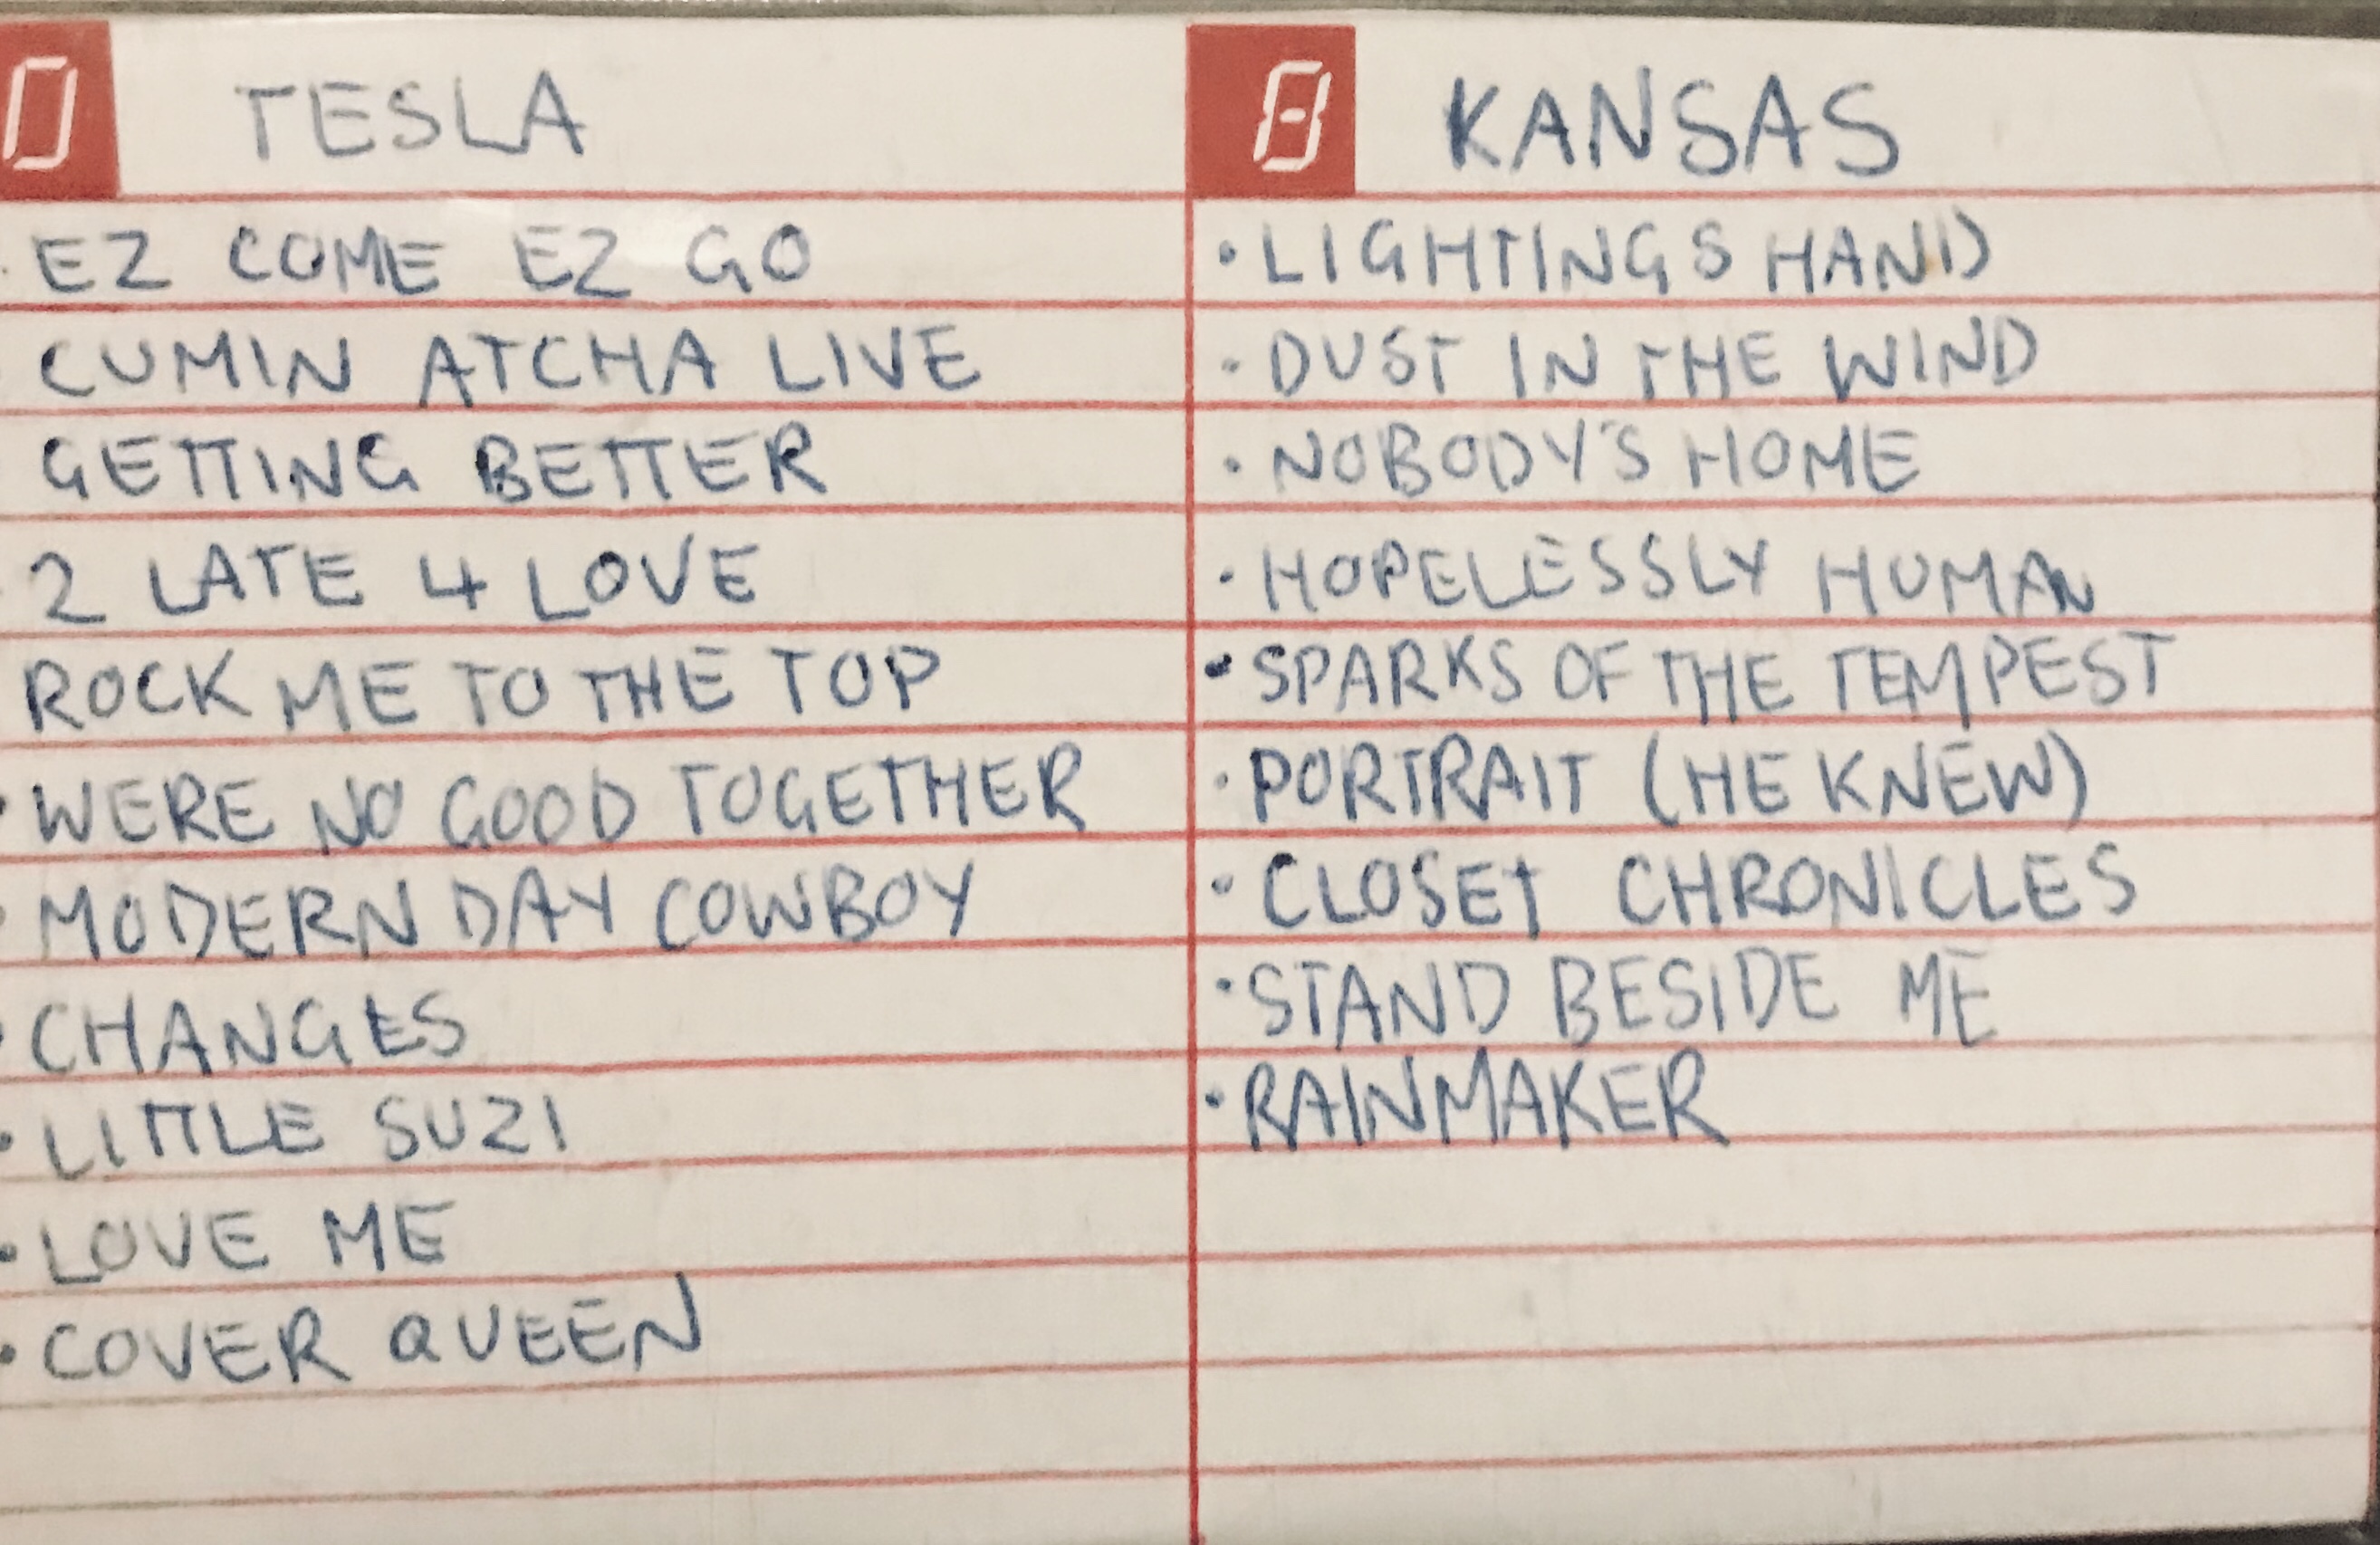 TESLA
EZ COME EZ GO
CUMIN ATCHA LIVE
GETTING BETTER
2 LATE 4 LOVE
ROCK ME TO THE TOP
WERE NO GOOD TOGETHER
MODERN DAY COWBOY
CHANGES
LITTLE SUZI
LOVE ME
COVER QUEEN
B KANSAS
LIGHTINGS HAND
DUST IN THE WIND
NOBODY'S HOME
HOPELESSLY HUMAN
SPARKS OF THE TEMPEST
PORTRAIT (HE KNEW)
CLOSET CHRONICLES
STAND BESIDE ME
RAINMAKER